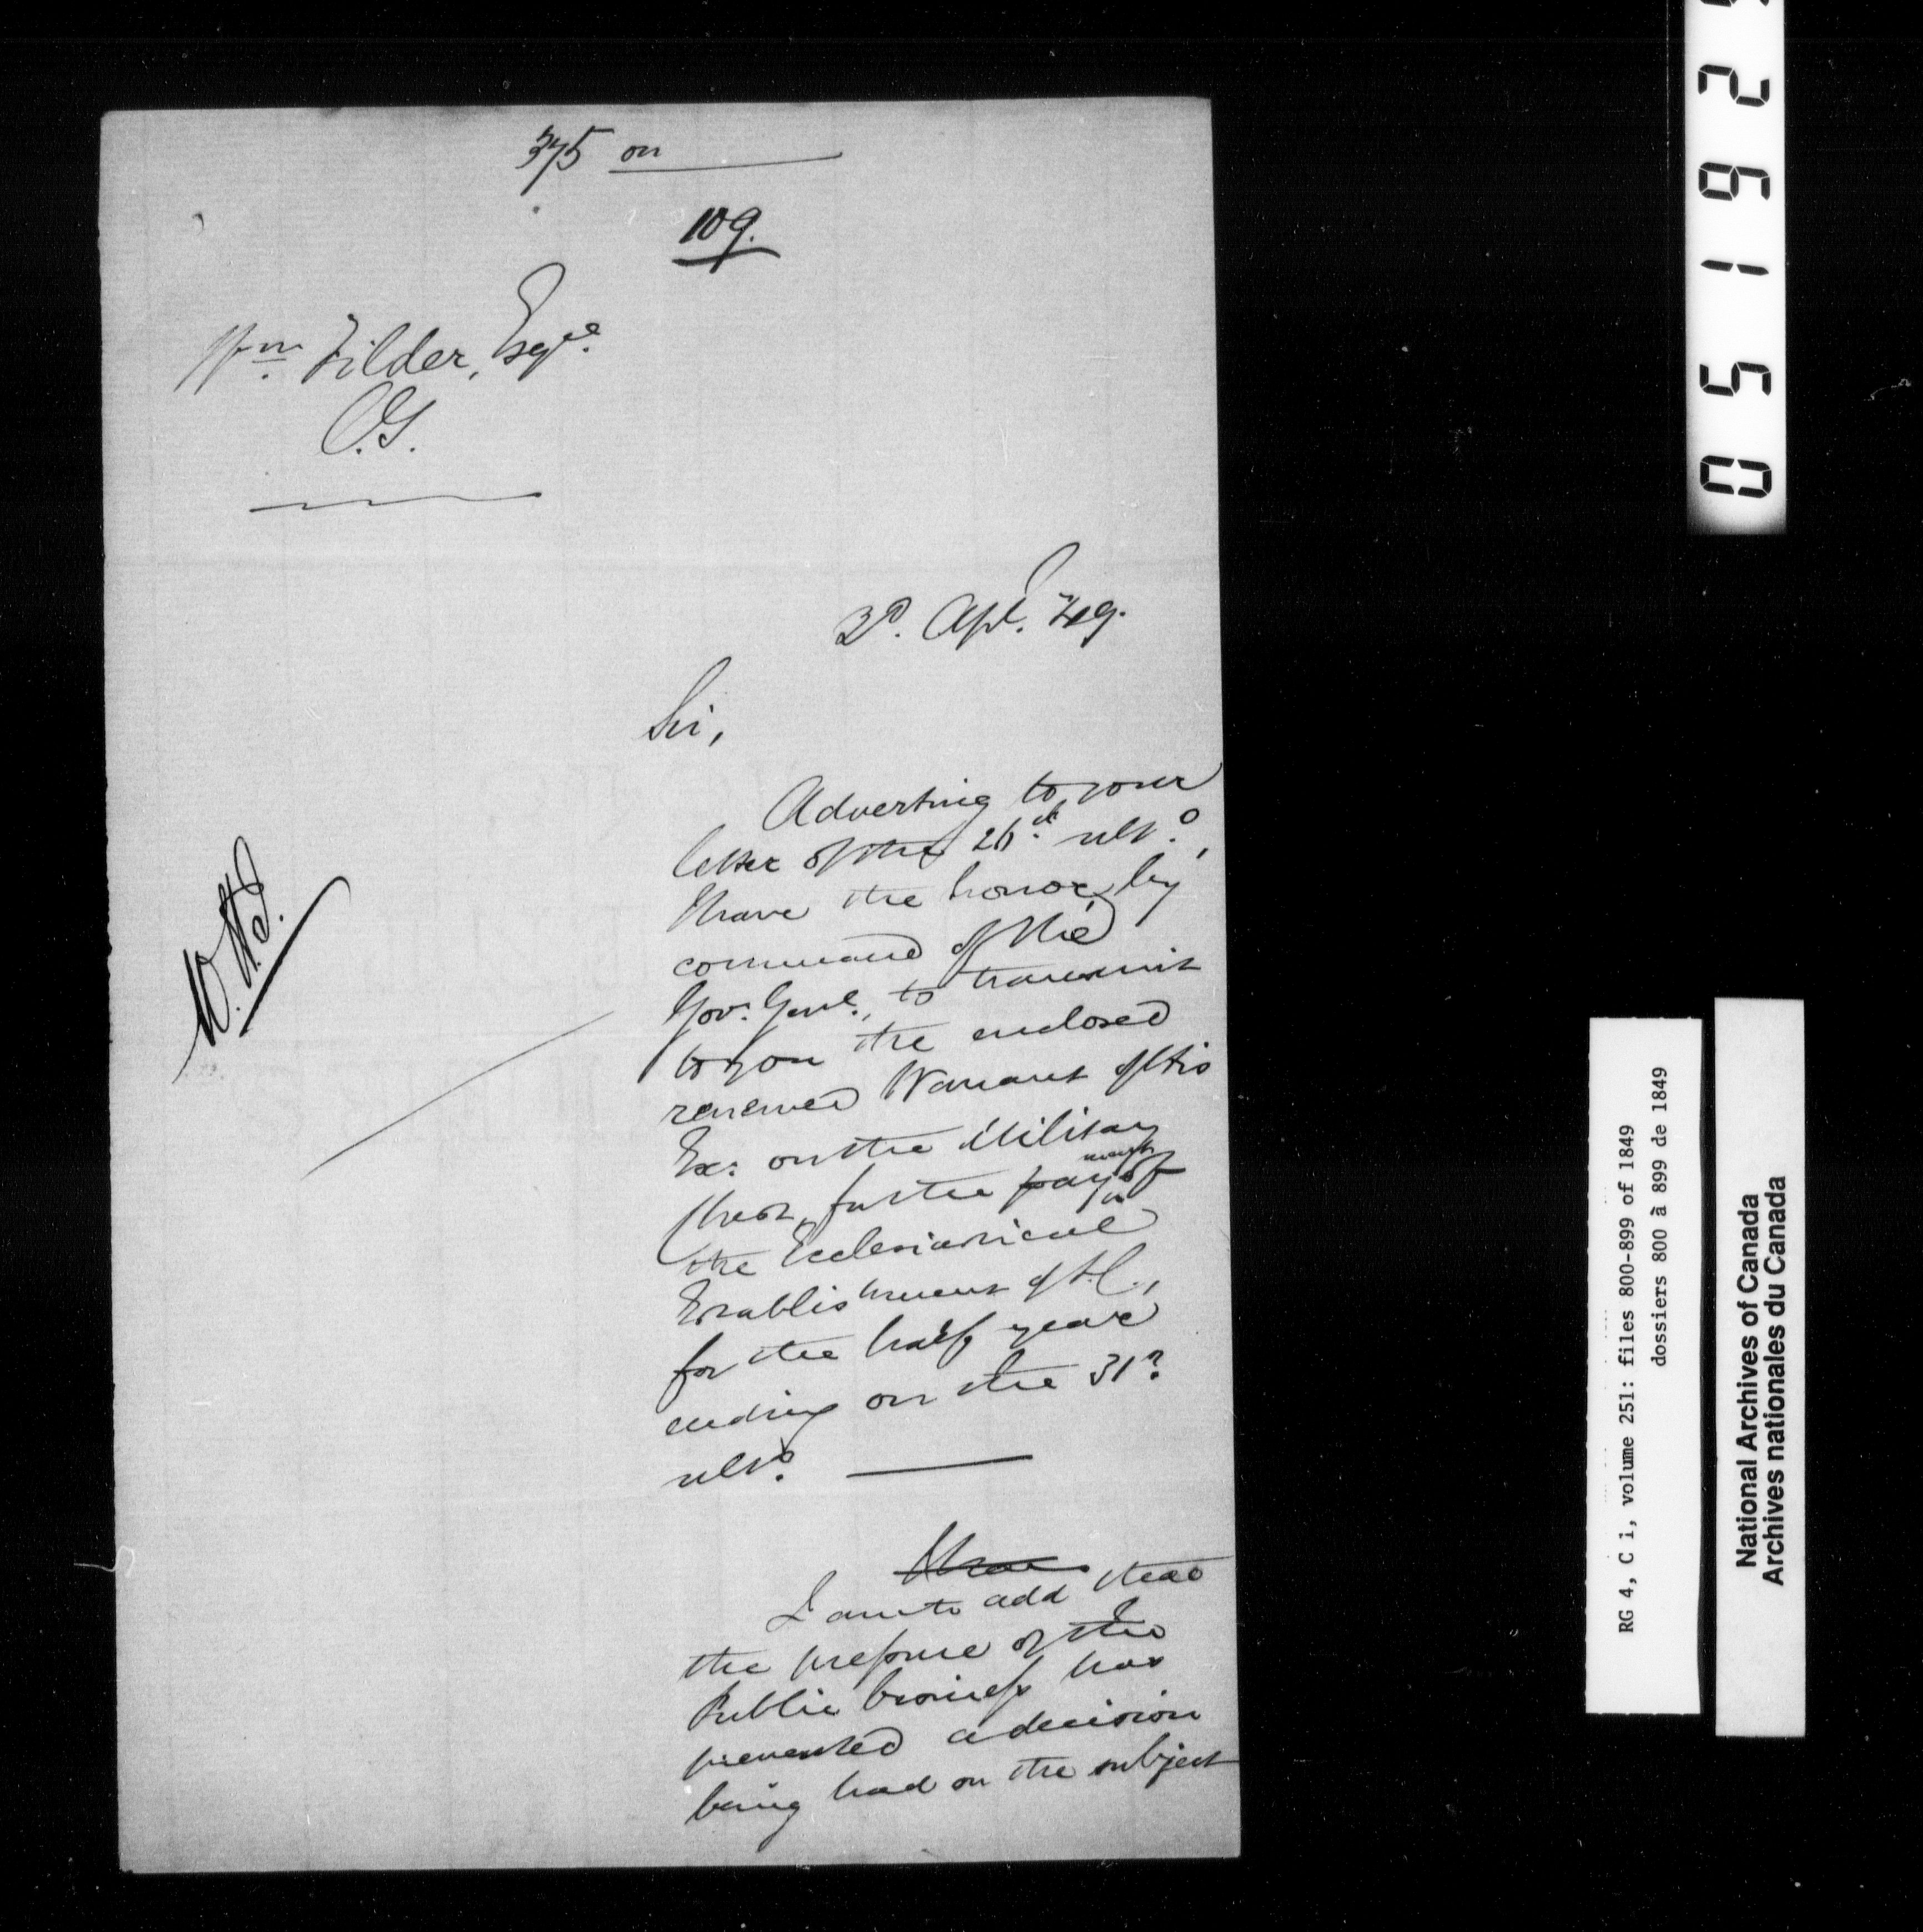 375 on
109.
Wm. Filder, Esqre.
C.G.
3d. Apl. /49.
Sir,
Adverting to your
letter of the 26th. ulto.,
I have the honor, by
command of the
Gov. Genl., to transmit
to you the enclosed
renewed Warrant of His
Ex: on the Military
Chest, for the payment of
the Ecclesiastical
Establishment of L.C.,
for the half year
ending on the 31st
ulto.
W.H.J.
I have
I am to add that
the pressure of the
Public business has
prevented a decision
being had on the subject
0 5 1 9 2
RG 4, C 1, volume 251: files 800-899 of 1849
dossiers 800 à 899 de 1849
National Archives of Canada
Archives nationales du Canada